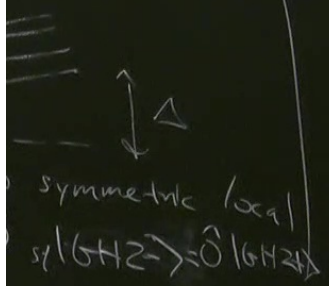 Δ
symmetric local
|GHZ-⟩=Ô|GHZ+⟩